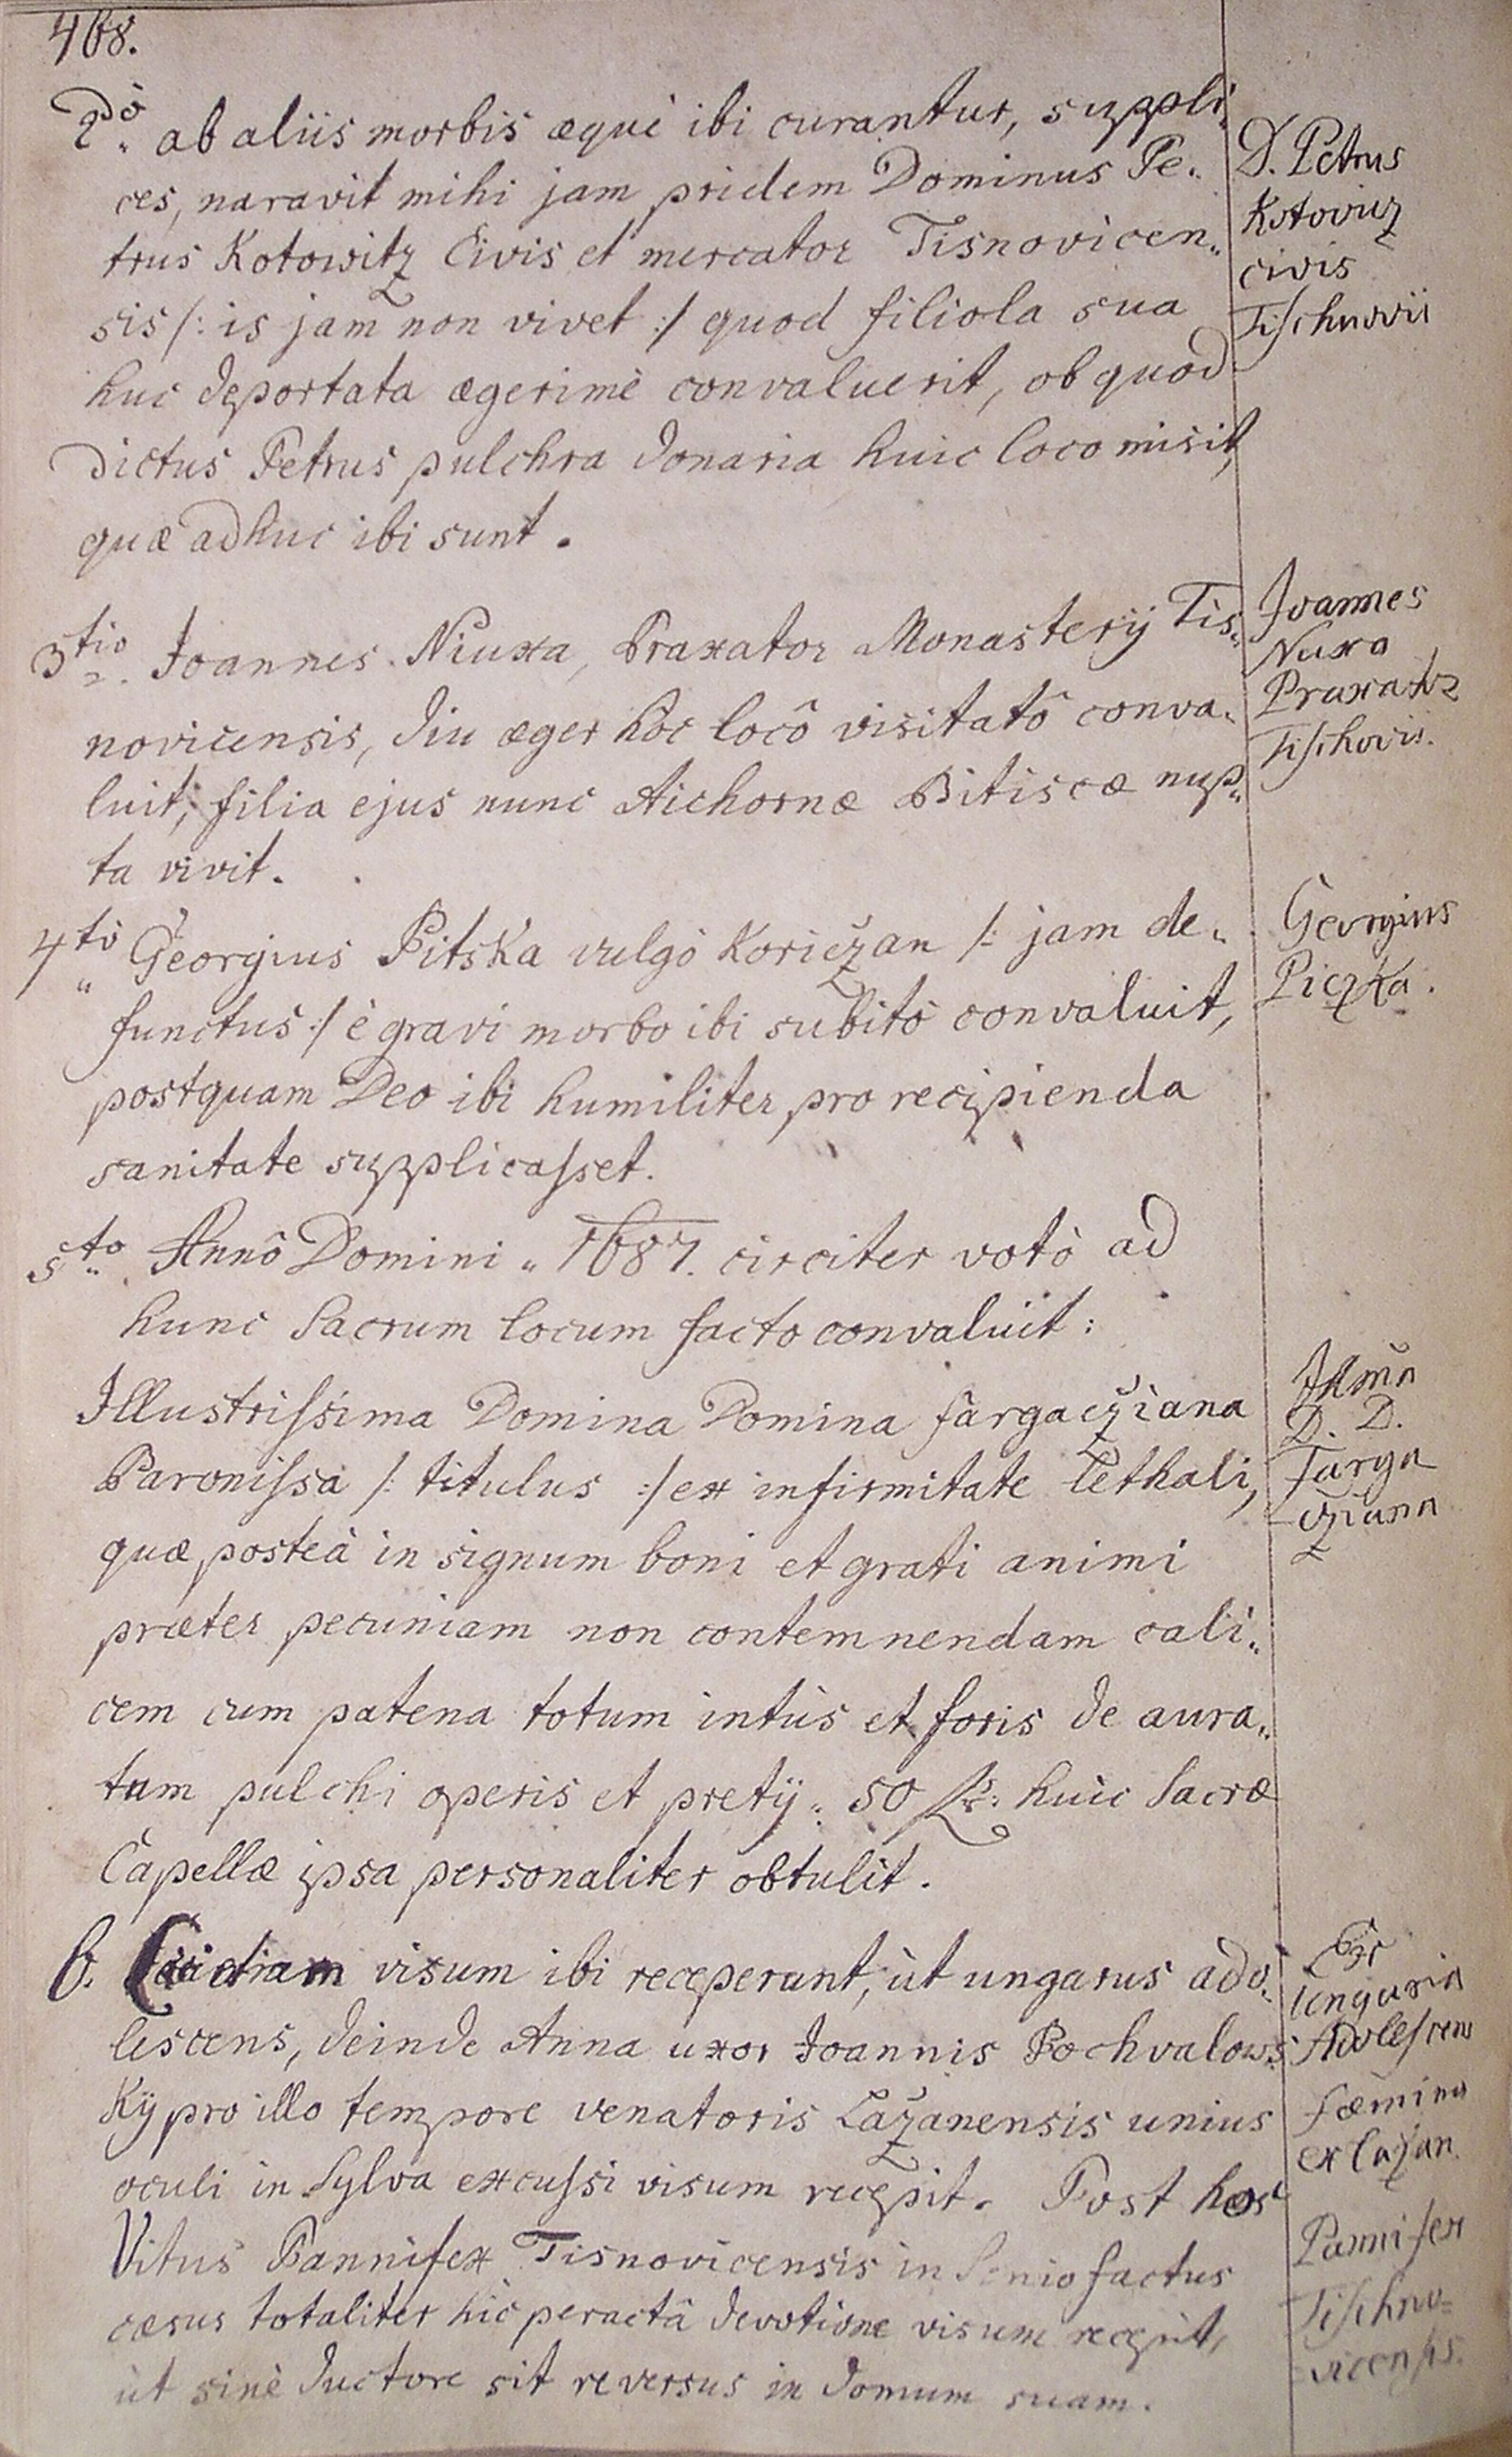 468.
2dò ab aliis morbis æquè ibi curantur, suppli„
ces, naravit mihi jam pridem Dominus Pe„
trus Kotowitz Civis et mercator Tisnovicen„
sis /: is jam non vivet :/ quod filiola sua
huc deportata ægerimè convaluerit, ob quod
dictus Petrus pulchra donaria huic loco misit,
quæ adhuc ibi sunt.
D. Petrus
Kotoviz
civis
Tischnovii
3tio Joannes Niuxa, Braxator Monasterÿ Tis„
novicensis, diu æger hôc locô visitatô conva„
luit; filia ejus nunc Aichornæ Bitiscæ nup„
ta vivit.
Joannes
Nuxa
Praxator
Tischovis.
4tò Georgius Pitska vulgò Koriczan /: jam de„
functus :/ è gravi morbo ibi subitò convaluit,
postquam Deo ibi humiliter pro recipienda
sanitate supplicasset.
Georgius
Piczka.
5to Annô Domini „ 1687. circiter votò ad
hunc Sacrum locum facto convaluit:
Illustrissima Domina Domina Fargacziana
Baronissa /: titulus :/ ex infirmitate lethali,
quæ posteà in signum boni et grati animi
præter pecuniam non contemnendam cali„
cem cum patena totum intùs et foris de aura„
tum pulchi operis et pretÿ „ 50 huic Sacræ
Capellæ ipsa personaliter obtulit.
Illma
D. D.
Farga
cziana
6. visum ibi receperunt, ùt ungarus ado„
lescens, deinde Anna uxor Joannis Pochvalows„
Kÿ pro illo tempore venatoris Lažanensis unius
oculi in Sylva excussi visum recepit. Post hos
Vitus Pannifex Tisnovicensis in Senio factus
cæsus totaliter hìc peractâ devotione visum recepit,
ùt sinè ductore sit reversus in domum suam.
Ex
Ungaria
Adolescens
fæmina
ex Lažan.
Pannifex
Tischno=
vicensis.